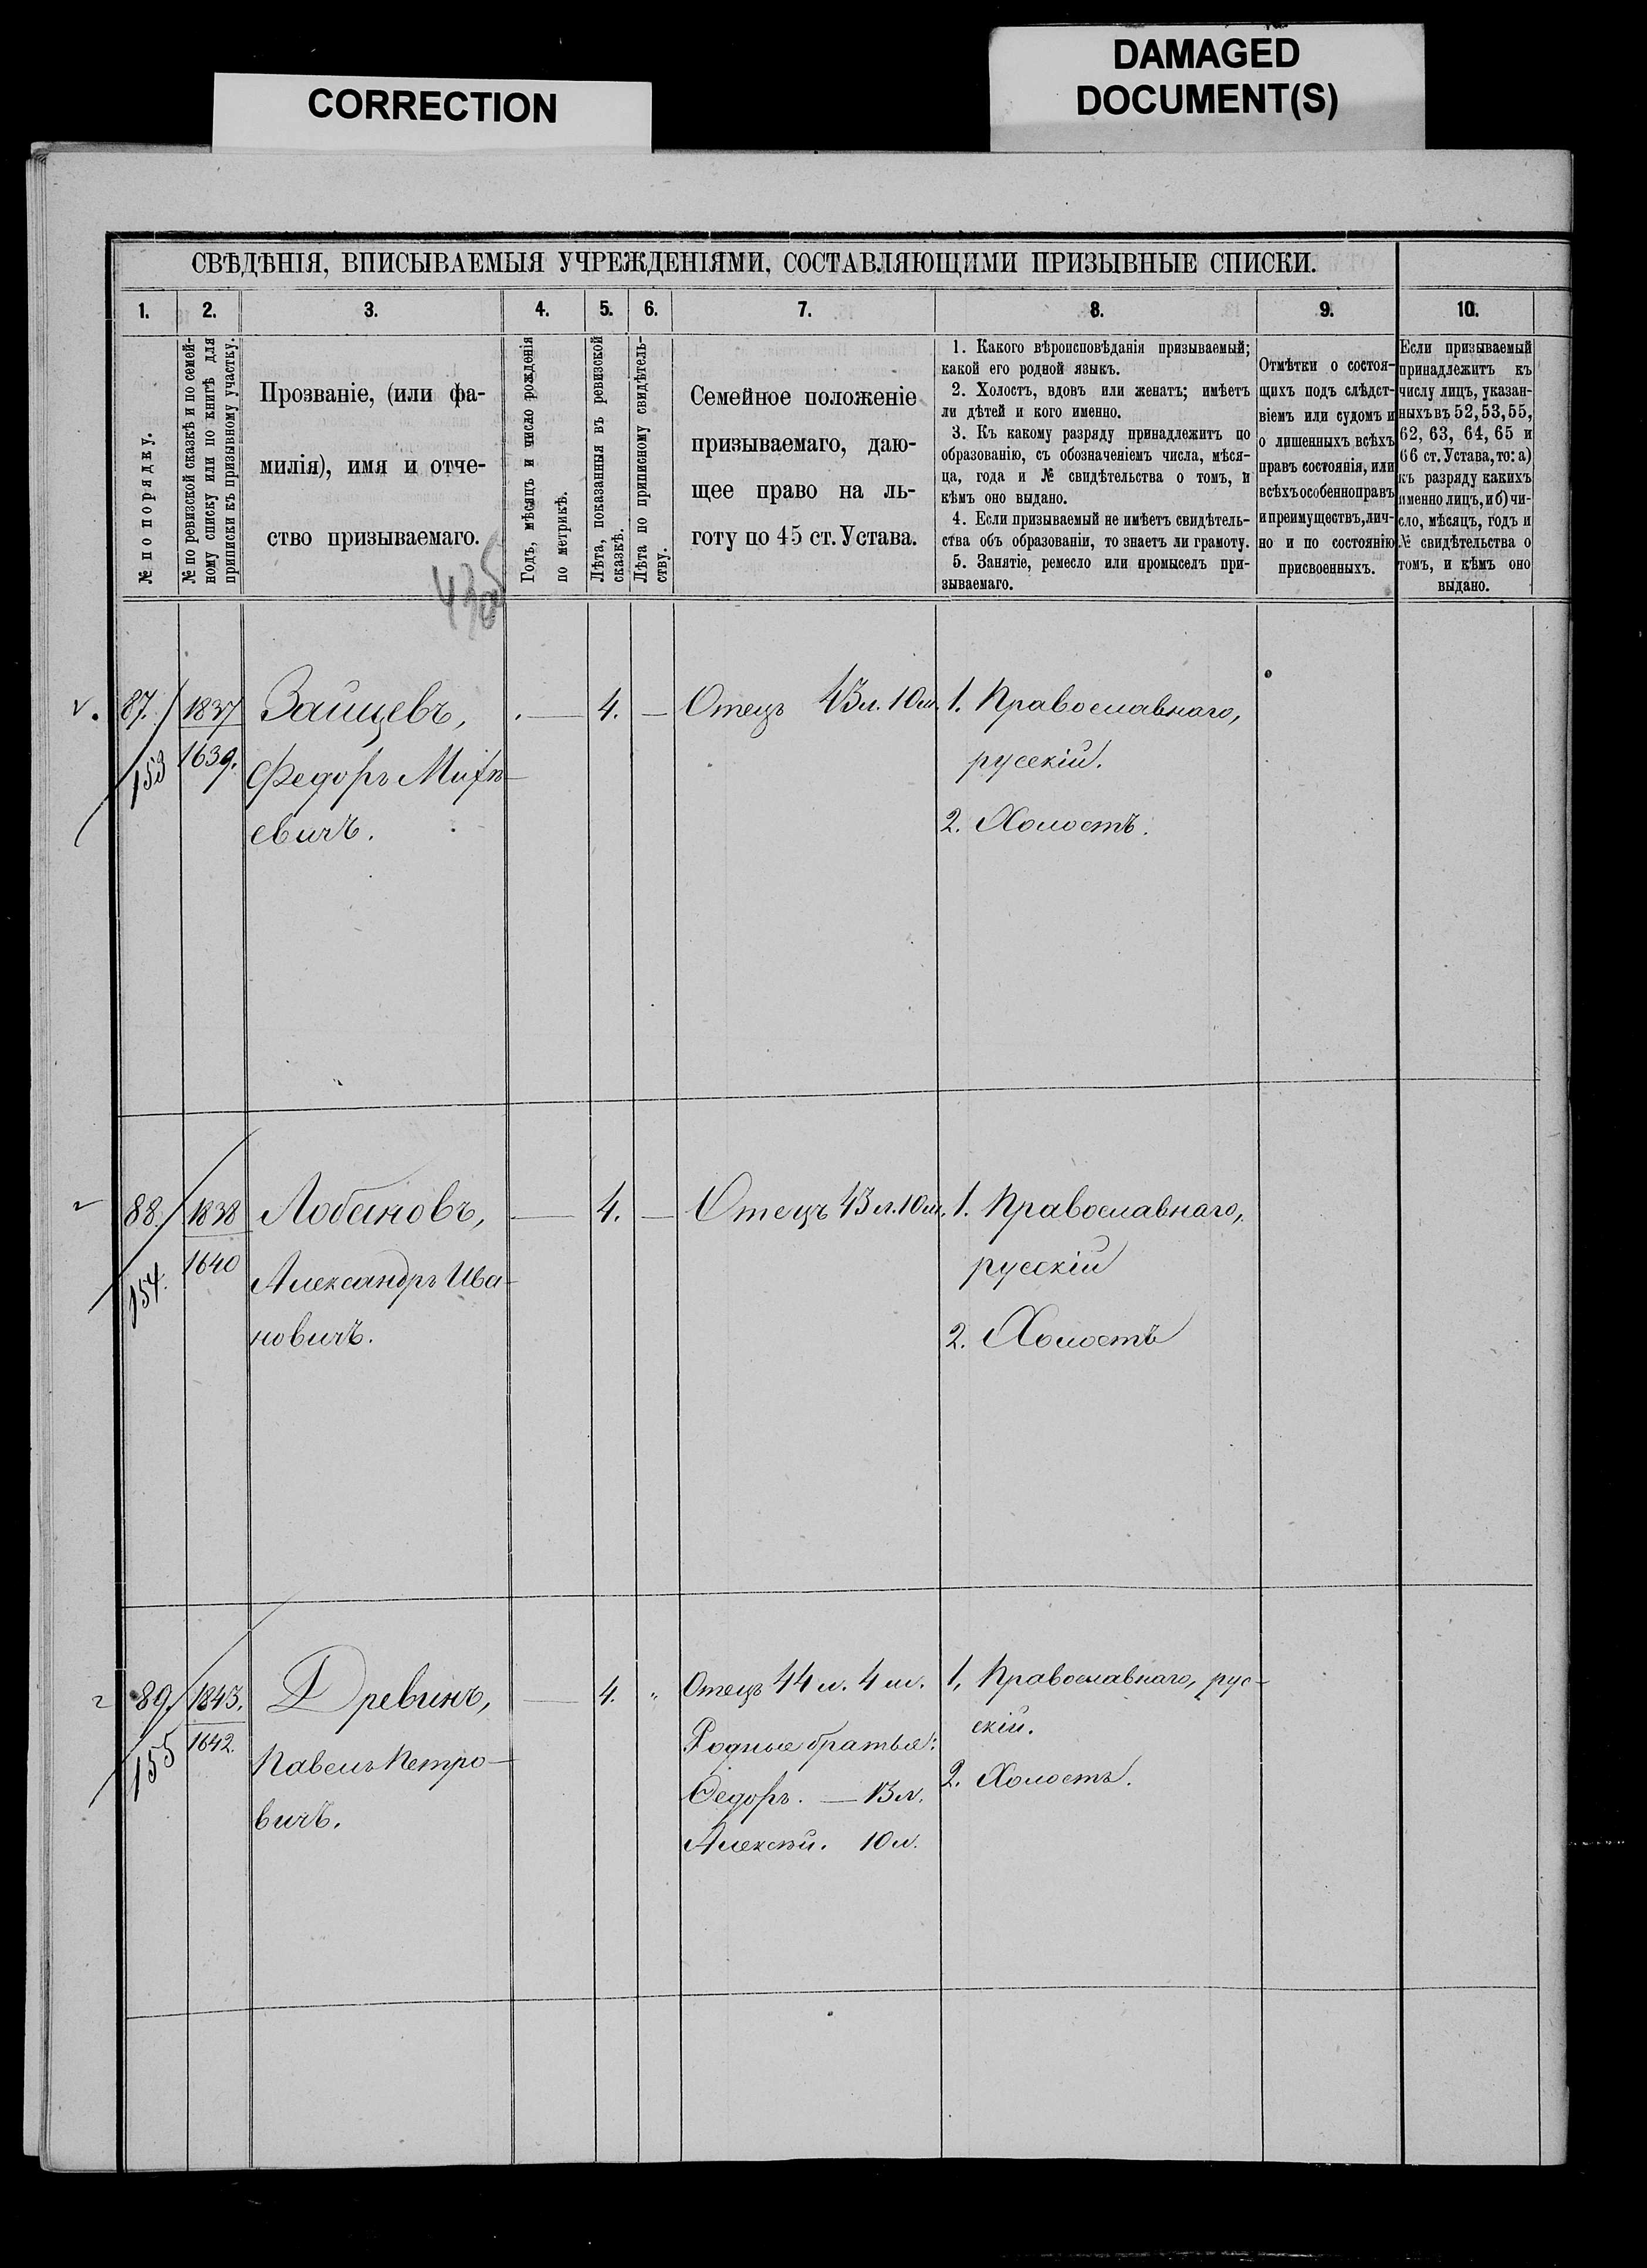 CORRECTION
DAMAGED
DOCUMENT(S)
СВѢДѢНІЯ, ВПИСЫВАЕМЫЯ УЧРЕЖДЕНІЯМИ, СОСТАВЛЯЮЩИМИ ПРИЗЫВНЫЕ СПИСКИ.
1. 2. 3. 4. 5. 6. 7. 8. 9. 10.
№ по порядку.
№ по ревизской сказкѣ и по семей-
ному списку или по книгѣ для
приписки къ призывному участку.
Прозваніе, (или фа-
милія), имя и отче-
ство призываемаго.
Годъ, мѣсяцъ и число рожденія
по метрикѣ.
Лѣта, показанныя въ ревизской
сказкѣ.
Лѣта по приписному свидѣтель-
ству.
Семейное положеніе
призываемаго, даю-
щее право на ль-
готу по 45 ст. Устава.
1. Какого вѣроисповѣданія призываемый;
какой его родной языкъ.
2. Холостъ, вдовъ или женатъ; имѣетъ
ли дѣтей и кого именно.
3. Къ какому разряду принадлежитъ по
образованію, съ обозначеніемъ числа, мѣся-
ца, года и № свидѣтельства о томъ, и
кѣмъ оно выдано.
4. Если призываемый не имѣетъ свидѣтель-
ства объ образованіи, то знаетъ ли грамоту.
5. Занятіе, ремесло или промыселъ при-
зываемаго.
Отмѣтки о состоя-
щихъ подъ слѣдст-
віемъ или судомъ и
о лишенныхъ всѣхъ
правъ состоянія, или
всѣхъ особенно правъ
и преимуществъ, лич-
но и по состоянію
присвоенныхъ.
Если призываемый
принадлежитъ къ
числу лицъ, указан-
ныхъ въ 52, 53, 55,
62, 63, 64, 65 и
66 ст. Устава, то: а)
къ разряду какихъ
именно лицъ, и б) чи-
сло, мѣсяцъ, годъ и
№ свидѣтельства о
томъ, и кѣмъ оно
выдано.
87. 1837 Зайцевъ, — 4. — Отецъ 43 л. 10 м. 1. Православнаго,
153 1639. Федоръ Михѣ- русскій.
евичъ. 2. Холостъ.
88. 1838 Лобановъ, — 4. — Отецъ 43 л. 10 м. 1. Православнаго,
154. 1640 Александръ Ива- русскій
новичъ. 2. Холостъ
89. 1843. Древинъ, — 4. " Отецъ 44 л. 4 м. 1, Православнаго, рус-
155 1642. Павелъ Петро- Родные братья: скій.
вичъ. Ѳедоръ. — 13 л. 2. Холостъ.
Алексѣй. 10 л.